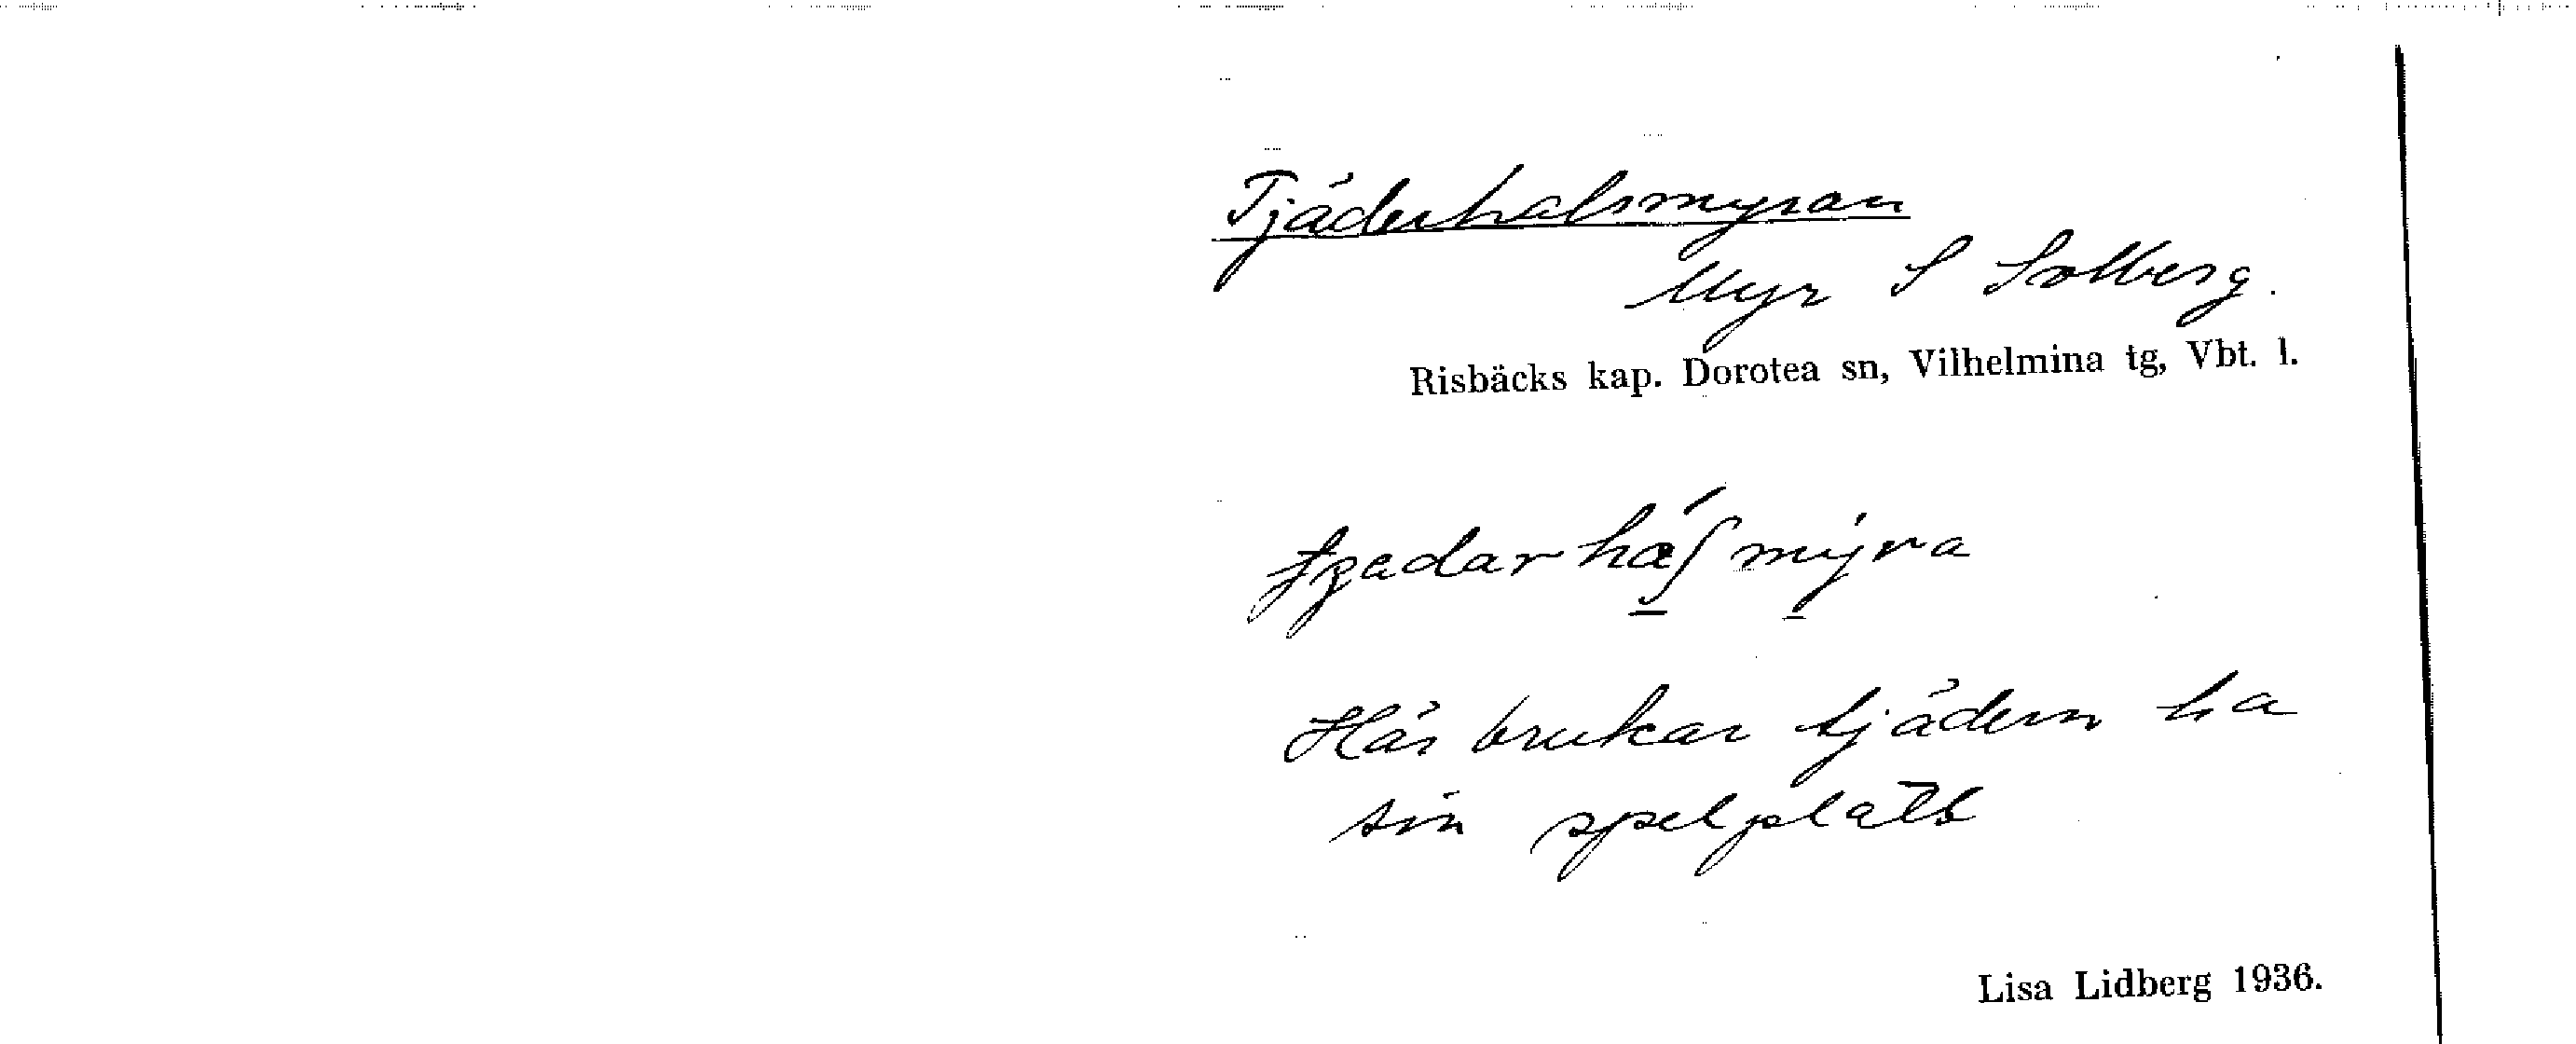 Tjäderhalsmyran
Myr S Solberg.
Risbäcks kap. Dorotea sn, Vilhelmina tg, Vbt. l.
Här brukar tjädern ha
sin spelplats
Lisa Lidberg 1936.